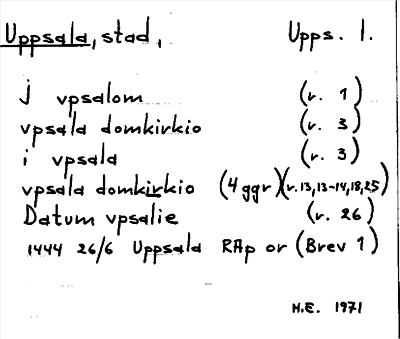 Uppsala, stad, Upps. l.
J vpsalom (r. 1)
vpsala domkirkio (r. 3)
i vpsala (r. 3)
vpsala domkirkio (4 ggr) (r. 13, 13-14, 18, 25)
Datum vpsalie (r. 26)
1444 26/6 Uppsala RAp or (Brev 1)
M.E. 1971